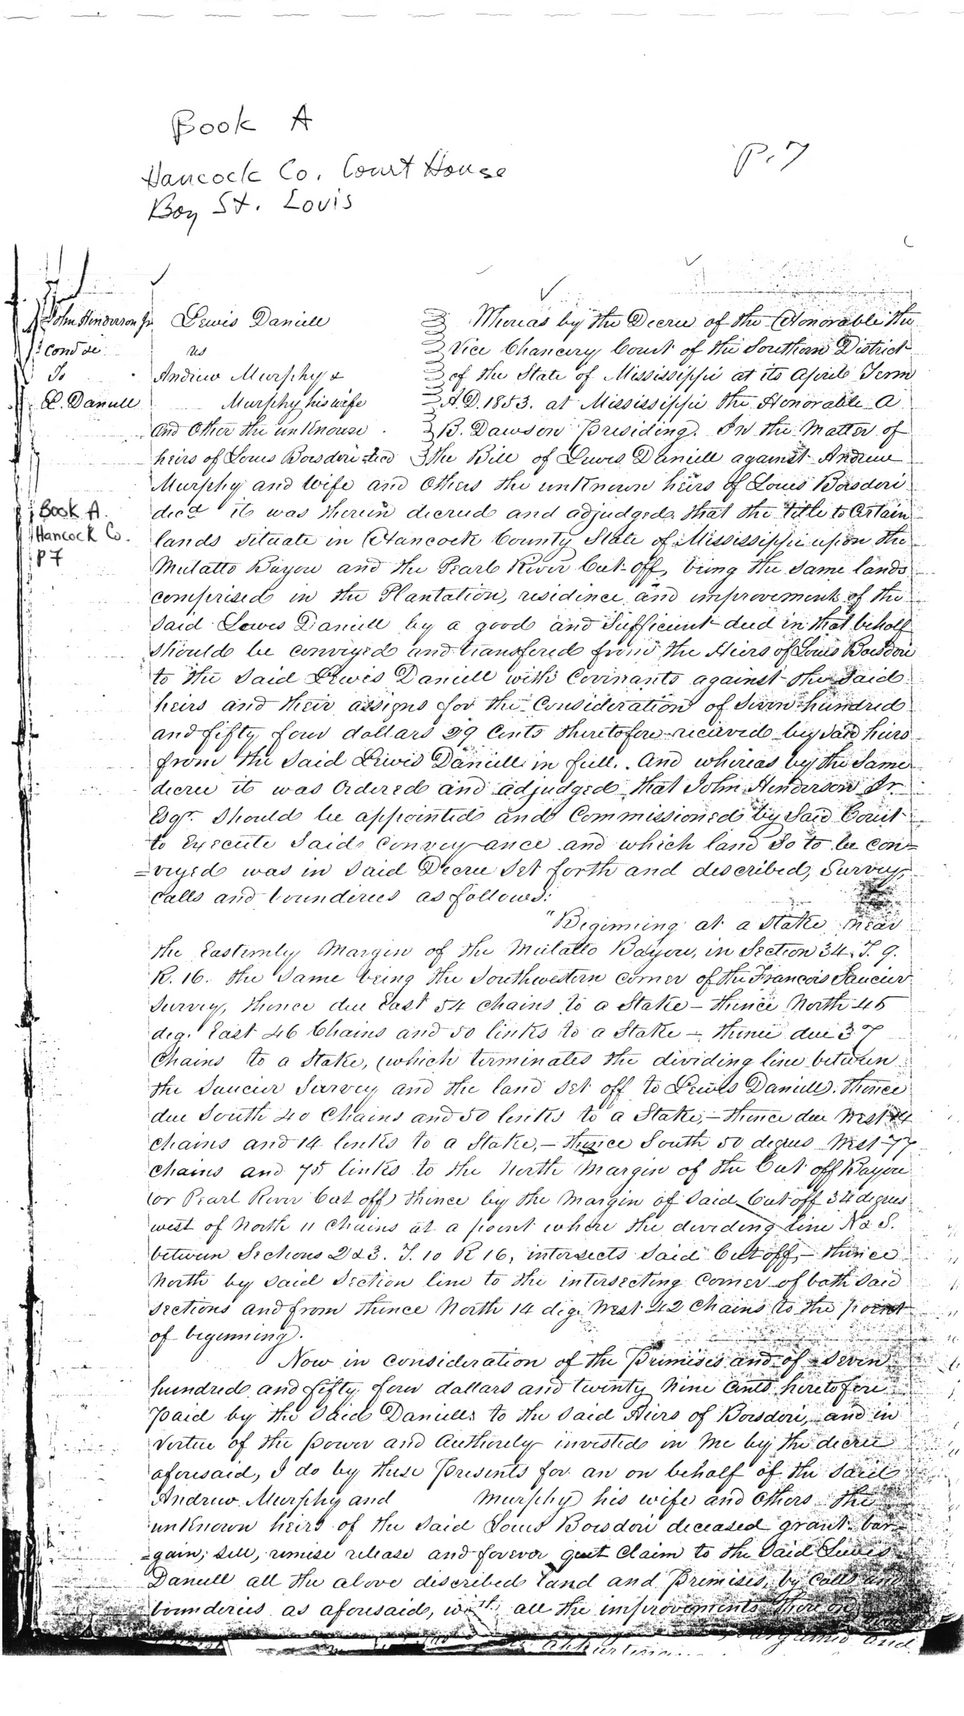 Book A
P. 7
Hancock Co. Court House
Bay St. Louis
John Hinderson Jr
To
L. Daniell
Book A.
Hancock Co.
P 7
Lewis Daniell
vs
Andrew Murphy &
Murphy his wife
and other the unknouse
heirs of Louis Boisdori decd
Whereas by the Decree of the Honorable the
Vice Chancery Court of the Southern District
of the State of Mississippi at its April Term
A.D. 1853. at Mississippi the Honorable A
B. Dawson Presiding. In the Matter of
the Bill of Lewis Daniell against Andrew
Murphy and wife and others the unknown heirs of Louis Boisdori
decd it was therein decreed and adjudged that the title to Certain
lands situate in Hancock County State of Mississippi upon the
Mulatto Bayou and the Pearl River Cut-off, being the same lands
comprised in the Plantation, residince and improvement of the
said Lewis Daniell by a good and sufficient deed in that behalf
should be conveyed and transfered from the Heirs of Louis Boisdori
to the said Lewis Daniell with Covenants against the said
heirs and their assigns for the Consideration of seven hundred
and fifty four dollars 29 Cents theretofore recieved by said heirs
from the said Lewis Daniell in full. And whereas by the same
decree it was Ordered and adjudged that John Henderson Jr
Esqr. should be appointed and Commissioned by Said Court
to Execute Said convey-ance and which land so to be con=
=veyed was in said Decree set forth and described, Survey,
calls and bounderies as follows:
"Beginning at a stake near
the Easternly Margin of the Mulatto Bayou, in Section 34. T. 9.
R. 16. the same being the Southwestern corner of the Francois Saucier
survey, thence due East 54 chains to a Stake – thence North 45
deg. East 46 Chains and 50 links to a Stake – thence due 37
Chains to a Stake, (which terminates the dividing line between
the Saucier Survey and the land set off to Lewis Daniell). thence
due South 40 Chains and 50 links to a Stake, – thence due West 14
chains and 14 links to a Stake, – thence South 50 degrees West 77
chains and 75 links to the North Margin of the Cut off Bayou
(or Pearl River Cut off) thence by the Margin of said Cut off 34 degrees
west of North 11 chains at a point where the deviding line N & S.
between Sections 2 & 3. T. 10 R 16, intersects said Cut off, – thence
North by said Section line to the intersecting corner of both said
sections and from thence North 14 deg. West 42 Chains to the point
of beginning.
Now in consideration of the Primises and of seven
hundred and fifty four dollars and twenty Nine Cents heretofore
Paid by the said Daniells to the said Heirs of Boisdori, and in
vertue of the power and Authorety invested in Me by the decree
aforesaid, I do by these Presents for an on behalf of the said
Andrew Murphy and Murphy his wife and others the
unknown heirs of the said Louis Boisdori deceased grant bar=
=gain, sell, remise release and forever quit Claim to the Said Lewis
Daniell all the above described land and Premises, by calls and
bounderies as aforesaid, with all the improvements there on